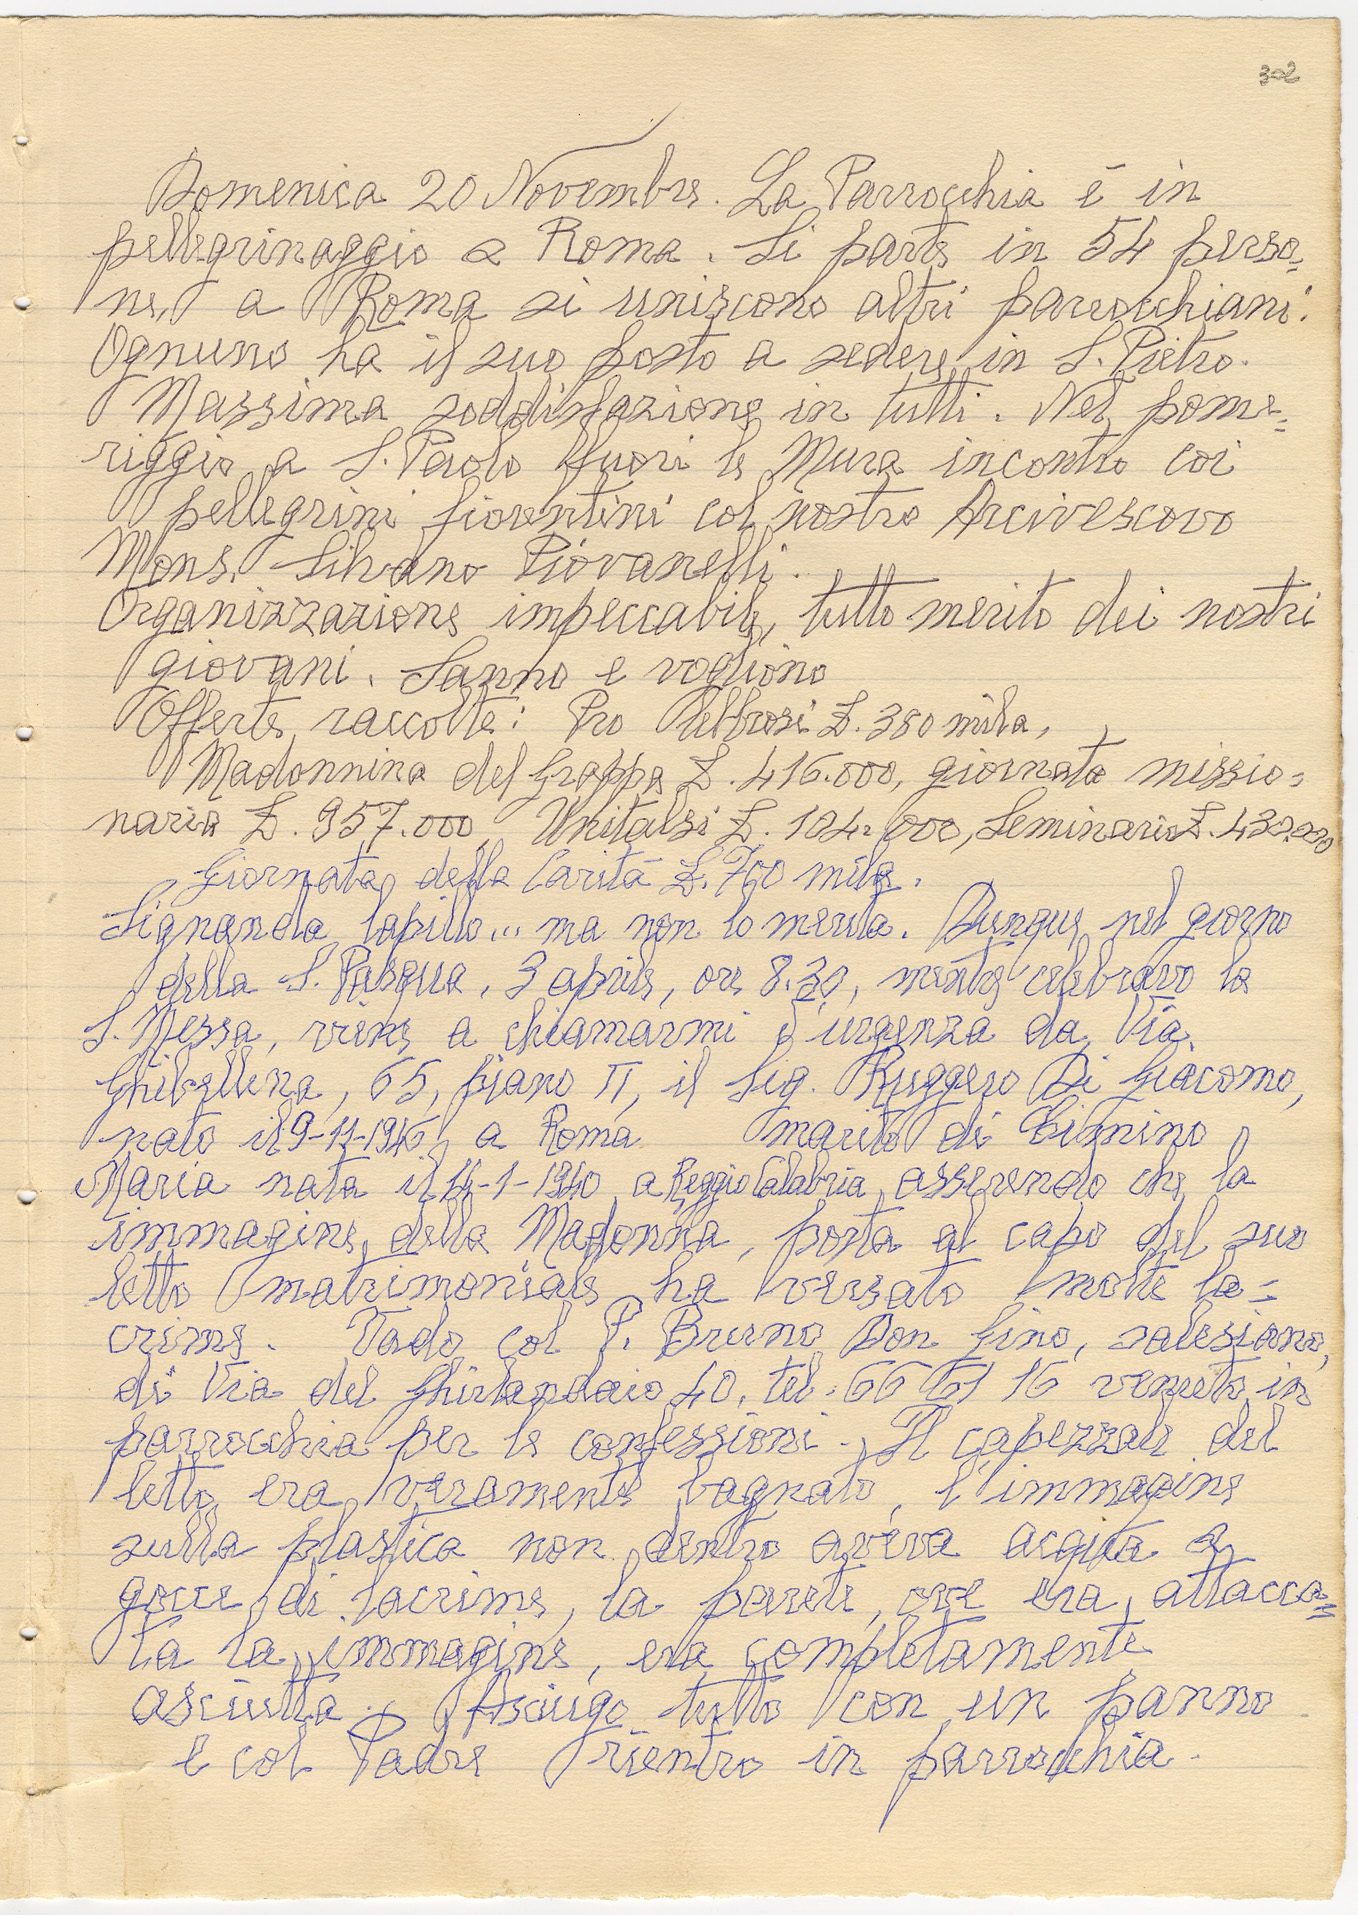 302
Domenica 20 Novembre. La Parrocchia è in
pellegrinaggio a Roma. Si parte in 54 perso=
ne, a Roma si uniscono altri parrocchiani.
Ognuno ha il suo posto a sedere in S. Pietro.
Massima soddisfazione in tutti. Nel pome=
riggio a S. Paolo fuori le Mura incontro coi
pellegrini fiorentini col nostro Arcivescovo
Mons. Silvano Piovanelli.
Organizzazione impeccabile, tutto merito dei nostri
giovani. Sanno e vogliono
Offerte raccolte: Pro lebbrosi £. 380 mila,
Madonnina del Grappa £. 416.000, giornata missio=
naria £. 957.000, Unitalsi £. 104.000, Seminario £. 430.000
Giornata della Carità £. 700 mila.
Signanda lapillo... ma non lo merita. Dunque, nel giorno
della S. Pasqua, 3 aprile, ore 8.30, mentre celebravo la
S. Messa, viene a chiamarmi d'urgenza da Via
Ghibellina, 65, piano II, il Sig. Ruggero Di Giacomo,
nato il 9-11-1946 a Roma marito di
Maria nata il 14-1-1940 a Reggio Calabria, asserendo che la
immagine della Madonna, posta al capo del suo
letto matrimoniale ha versato molte la=
crime. Vado col P. Bruno Don Gino, salesiano,
di Via del Ghirlandaio 40, tel. 66 16 venuto in
parrocchia per le confessioni. Il capezzale del
letto era veramente bagnato, l'immagine
sulla plastica non dentro aveva acqua a
gocce di lacrime, la parete, ove era attacca=
ta la immagine, era completamente
asciutta. Asciugo tutto con un panno
e col Padre rientro in parrocchia.